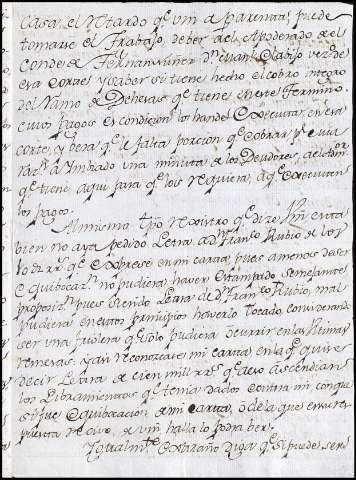 Casa, el Retardo que vm aparenta, puede
tomarse el Trabajo de ber al Apoderado de el
Conde de Fernannuñez Dn Juan Clabijo vezo de
esa Corte, y saber si tiene hecho el cobro integro
del Ramo de Dehesas que tiene en este Termino.
cuios Pagos es condicion los han de executar, en esa
corte, y bera qe le falta porcion qe cobrar pr cuia
razn a ymbiado una minuta de los Deudores, al
qe tiene aqui para qe los requiera, a qe executen
los pagos.
Al mismo tpo registro qe dize Vm en esta
bien no aya pedido Letra a Dn Franco Rubio de los
qe exprese en mi carta, pues amenos de ser
equibocazn no pudiera haver estampado semejante
proposizn pues siendo Letra de Dn Franco Rubio, mal
pudiera en estos principios haverlo tocado considerando
ser una friolera qe solo pudiera ocurrir en las ultimas
remesas. Y asi reconozcase mi carta en la qe quise
decir Letra de cien mill rrs qe a eso ascendian
los Libramientos que tenia dados contra mi conque
si fue equibocacion de mi carta, o de la que en su res
puesta recivo, de vm halla lo podra ber.
Igualmte extraño diga qe si puede ser